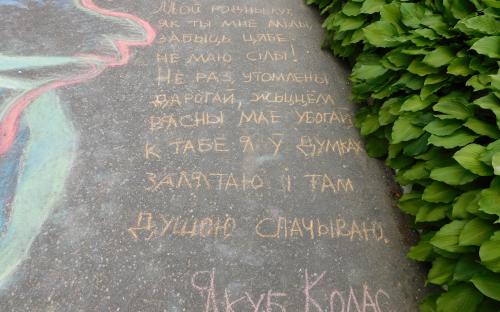 Мой родны кут,
Як ты мне мілы!
Забыць цябе
не маю сілы!
Не раз, утомлены
дарогай, жыццём
вясны мае убогай
к табе я ў думках
залятаю і там
душою спачываю.
Якуб Колас